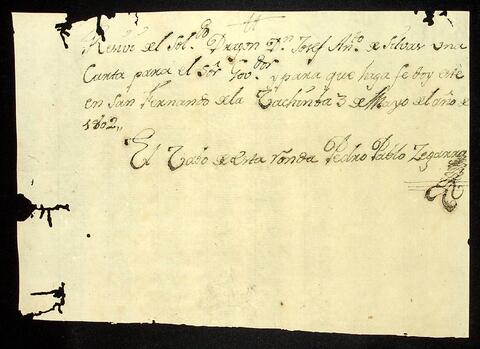 Reciví del Sol.do Dragon Dn Josef Anto de Silvas una
Carta para el Sór Gov.dor y para que haga fe doy este
en San Fernando de la Tachinta 3 de Mayo del año de
1802,,
El Cabo de esta ronda Pedro Pablo Zegarra